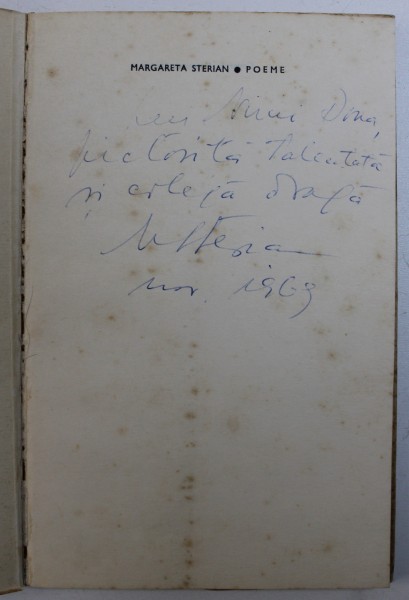 MARGARETA STERIAN ● POEME
Dona,
pictoriță talentată
și colegă dragă
MSterian
nov. 1969